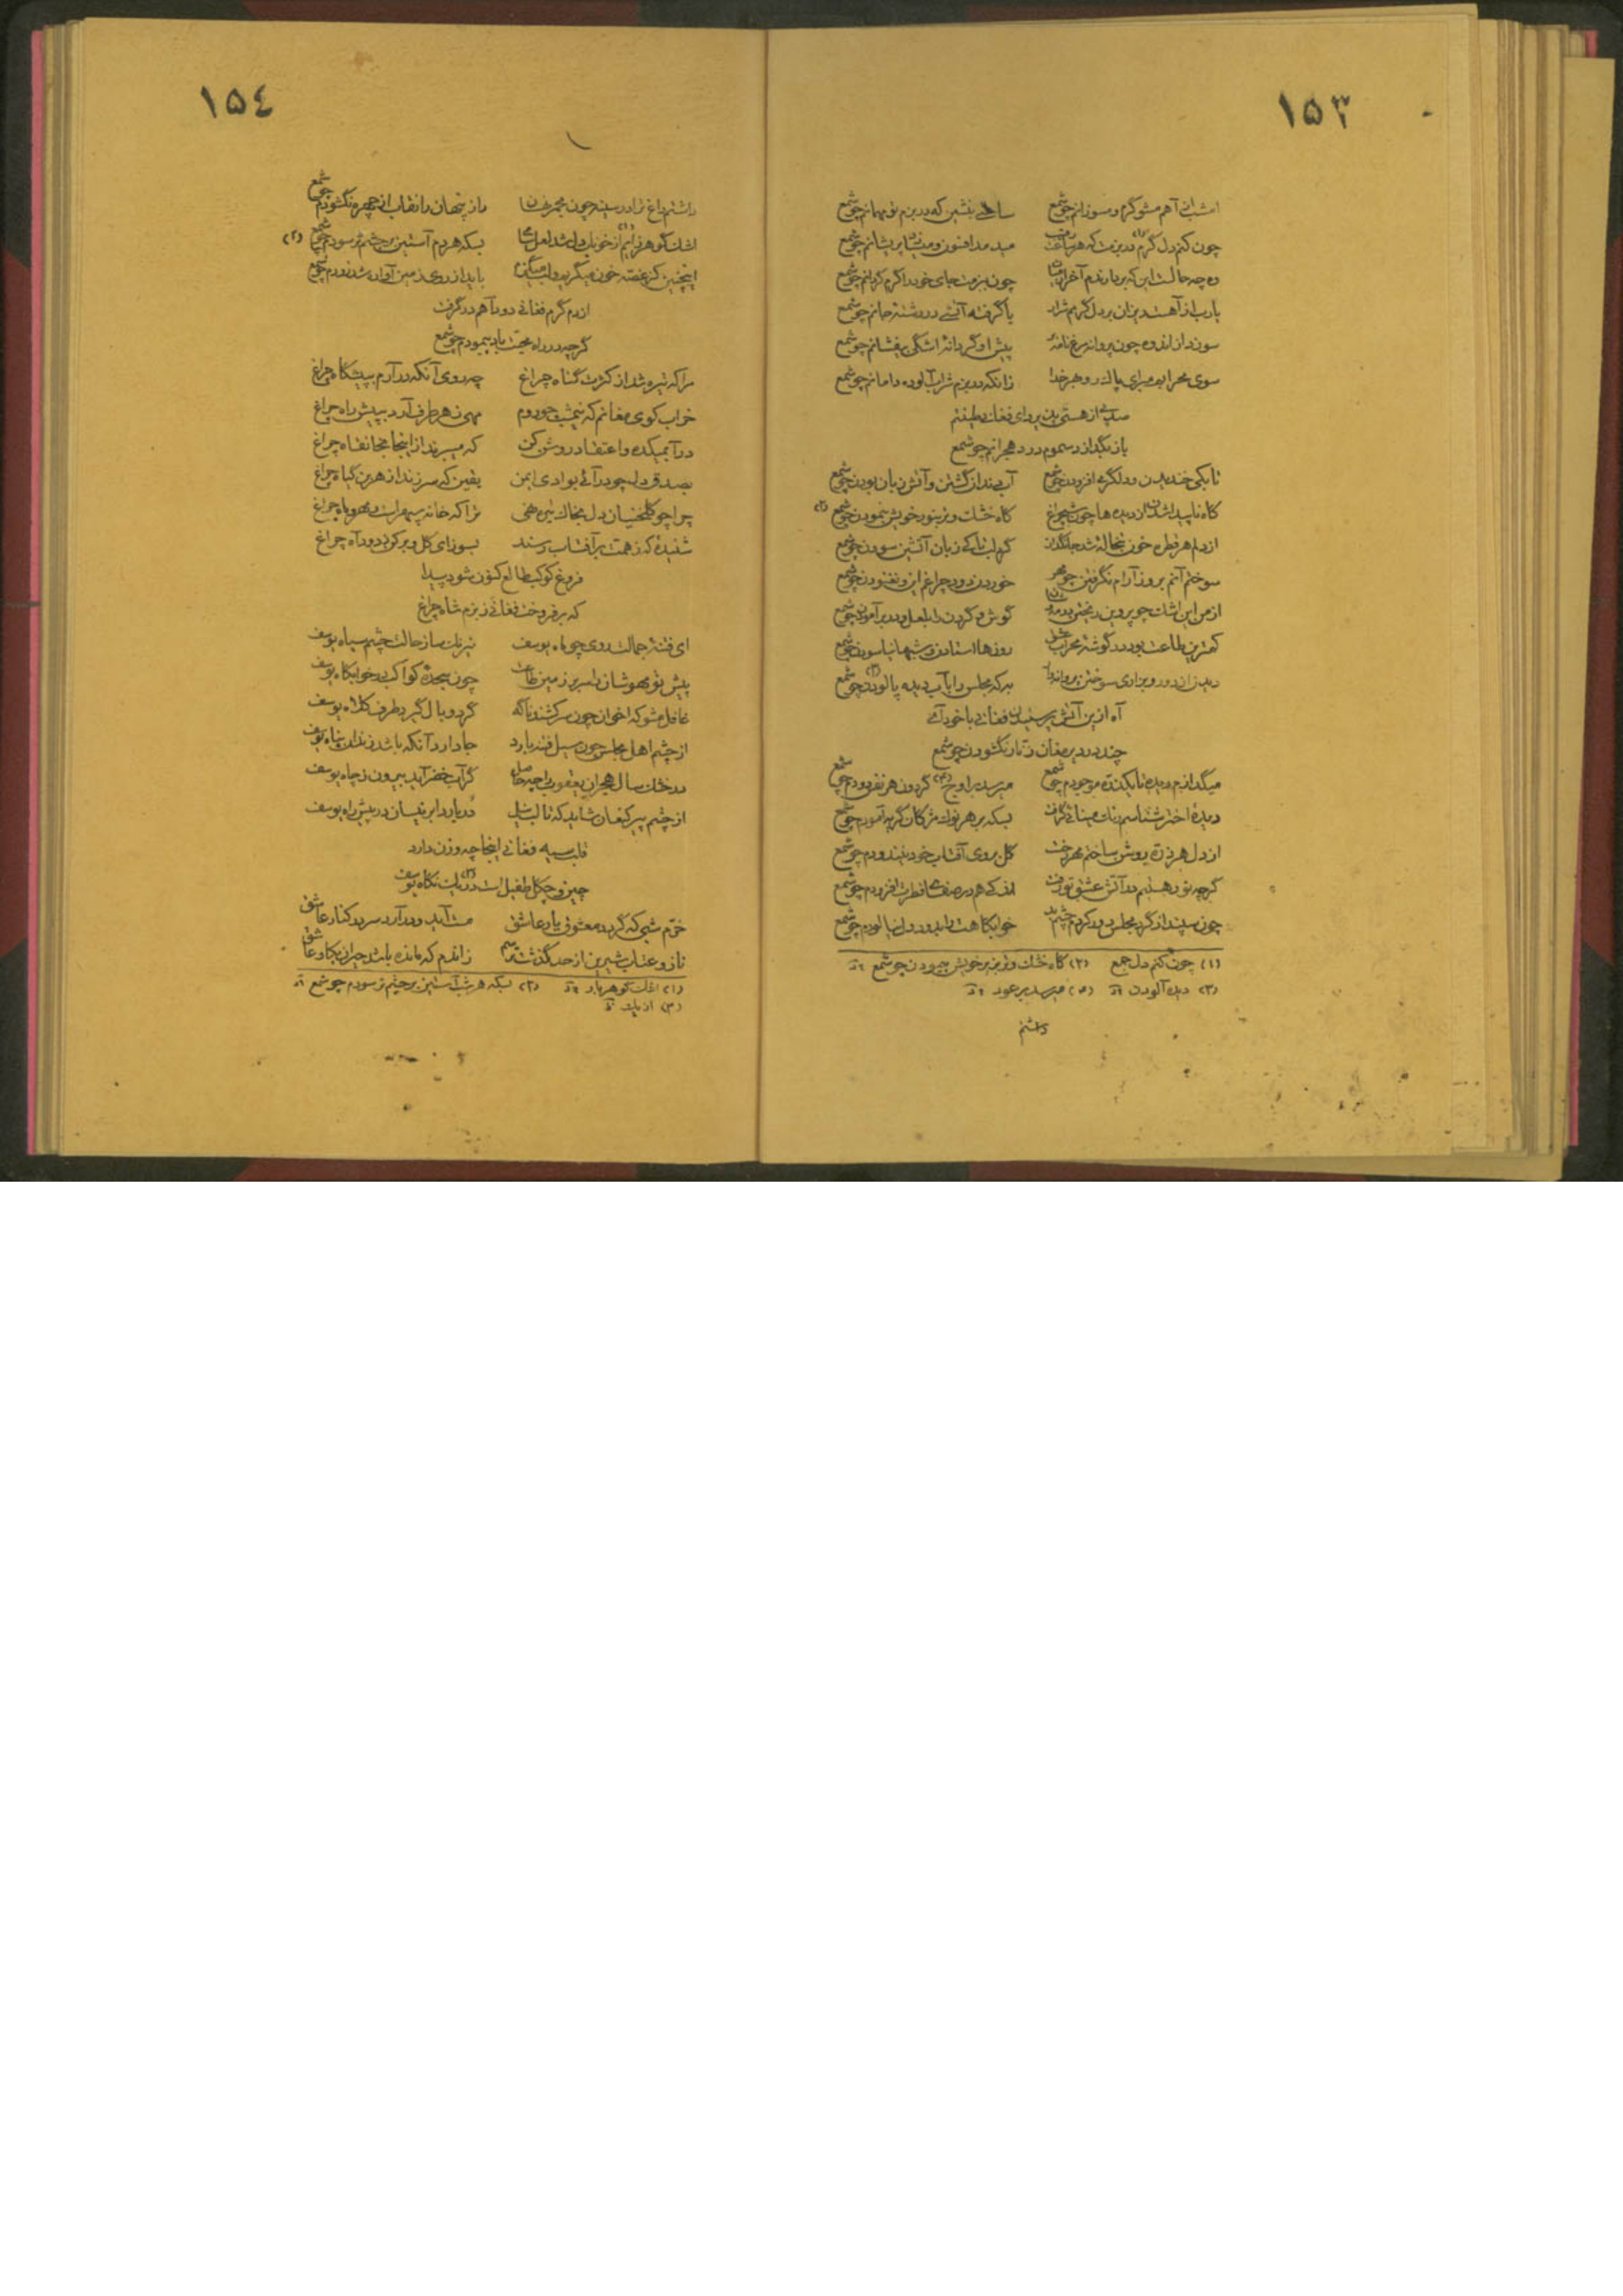 ١٥٣
امشب از آهم مشو گرم و مسوزانم چو شمع ساعتی بنشین که در بزم تو مهمانم چو شمع
چون کنم دل گرم (١) در بزمت که هر ساعت رقیب میدمد افسون و میسازد پریشانم چو شمع
وه چه حالست این که بر بادم آخر چون بزمت جای خود را گرم گردانم چو شمع
یارب از آهست ریزان بر دل گرمم شرار یا گرفته آتشی در رشته جانم چو شمع
سوزد از اندوه چون پروانه مرغ نامه پیش او گر دانه اشکی بیفشانم چو شمع
سوی محرابم مبرای پاک رو بهر خدا زانکه در بزم شراب آلوده دامانم چو شمع
از هستی فغانی
باز بگدازد سموم درد هجرانم چو شمع
تا بکی خندیدن و دلگرمی افزودن چو شمع آب دندان گشتن و آتش زبان بودن چو شمع
گاه ناپیدا شدن از دیده ها چون شبچراغ گاه خشت زر بنور خویش بنمودن چو شمع (٢)
از دلم هر قطره خون تبخاله شد جانگداز گه لب زبان آتشین سودن چو شمع
سوختم آنم بروز آرام نگرفتن چو مهر خوردن دود چراغ این و نغنودن چو شمع
از من این اشک چو پروین ریختن گوش و گردن را بلعل و در بر آمودن چو شمع
کمترین طاعت بود در گوشه محراب عشق روزها استادن و شبها نیاسودن چو شمع
دیدن از دور و بزاری سوختن پروانه به که مجلس را بآب دیده پالودن (٣) چو شمع
آه ازین آتش پرستیدن فغانی با خود آی
چند در دیر مغان زنار نگشودن چو شمع
میگدازم دیده تا یکذره موجودم چو شمع میرسد بر اوج (٤) گردون هر نفس دودم چو شمع
دیده اختر شناسم رنگ مینائی گرفت بسکه بر هر نوک مژگان گریه آمودم چو شمع
از دل هر ذره روشن ساختم مهر رخت گل بروی آفتاب خود نیندودم چو شمع
گرچه نور هستیم در آتش عشق تو رفت اندکی هم در صفای فطرت افزودم چو شمع
چون سپند از گرد مجلس دور کردم چشم بد خوابگاهت را بدود دل نیالودم چو شمع
(١) چون کنم دل جمع (٢) گاه خشت زرین بر خویش پیمودن چو شمع
(٣) دیده آلودن (٤) میرسد بر عود
داشتم
١٥٤
داشتم داغ ترا در سینه چون مجمر نهان راز پنهان را نقاب از چهره نگشودم چو شمع
اشک گوهر زایم (١) از خوناب دل شد لعل بسکه هر دم آستین بر چشم تر سودم چو شمع (٢)
اینچنین کز غصه خون میگریم و لب میگزم باید از روی زمین آواره شد زودم چو شمع
از دم گرم فغانی دود آهم در گرفت
گرچه در راه محبت باد پیمودم چو شمع
مرا که تیره شد از کثرت گناه چراغ چه روی آنکه در آرم به پیشگاه چراغ
خراب کوی مغانم که نیمشب چو روم مهی ز هر طرف آرد به پیش راه چراغ
در آ بمیکده و اعتقاد روشن کن که میبرند از اینجا بخانقاه چراغ
بصدق دل چو در آئی بوادی ایمن یقین که سر زند از هر بن گیاه چراغ
چرا چو گلخنیان دل بخاک تیره نهی ترا که خانه سپهر است و مهر و ماه چراغ
شنیده که ز همت بر آفتاب رسند بسوز ای گل و بر کن ز دود آه چراغ
فروغ کوکب طالع کنون شود پیدا
که بر فروخت فغانی ز بزم شاه چراغ
ای فتنه جمالت روی چو ماه یوسف نیرنگ ساز حالت چشم سیاه یوسف
پیش تو مهوشان را سر بر زمین طاعت چون سجده کواکب در خوابگاه یوسف
غافل مشو که اخوان چون سر کشند ناگه گرد وبال گیرد طرف کلاه یوسف
از چشم اهل مجلس چون سیل فتنه بارد جا دارد آنکه باشد زندان پناه یوسف
در خشک سال هجران یعقوب را چه حاصل گر آب خضر آید بیرون ز چاه یوسف
از چشم پیر کنعان شاید که تا لب نیل در بارد ابر نیسان در پیش راه یوسف
قلب سیه فغانی اینجا چه وزن دارد
چین و چگل طفیل است در (٣) یک نگاه یوسف
خرم شبی که گردد معشوق یار عاشق مست آید و در آرد سر در کنار عاشق
ناز و عتاب شیرین از حد گذشت ترسم زاندم که مانده باشد حیران بکار عاشق
(١) اشک گوهر بار (٢) بسکه هر شب آستین بر چشم تر سودم چو شمع
(٣) از یک